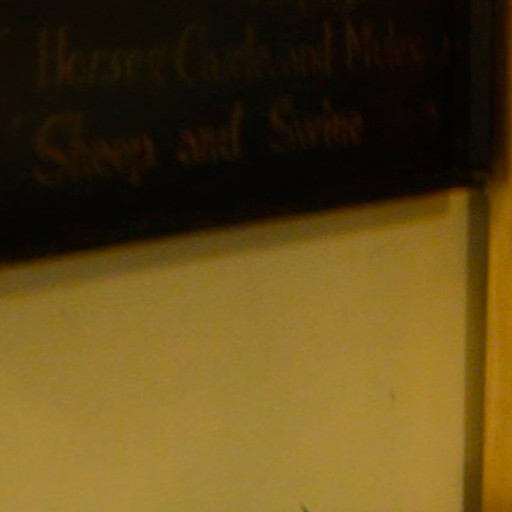 Horses, Cattle, and Mules
Sheep and Swine